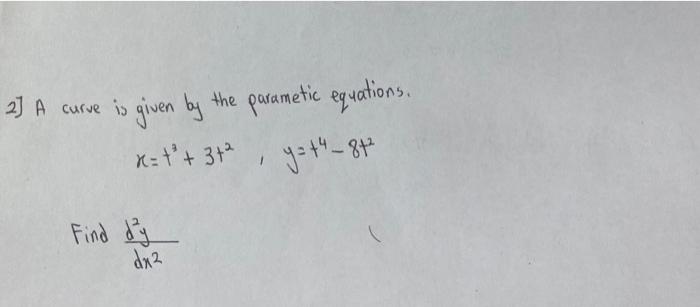 2] A curve is given by the parametic equations.
x = t³ + 3t² , y = t⁴ - 8t²
Find d²y
dx²